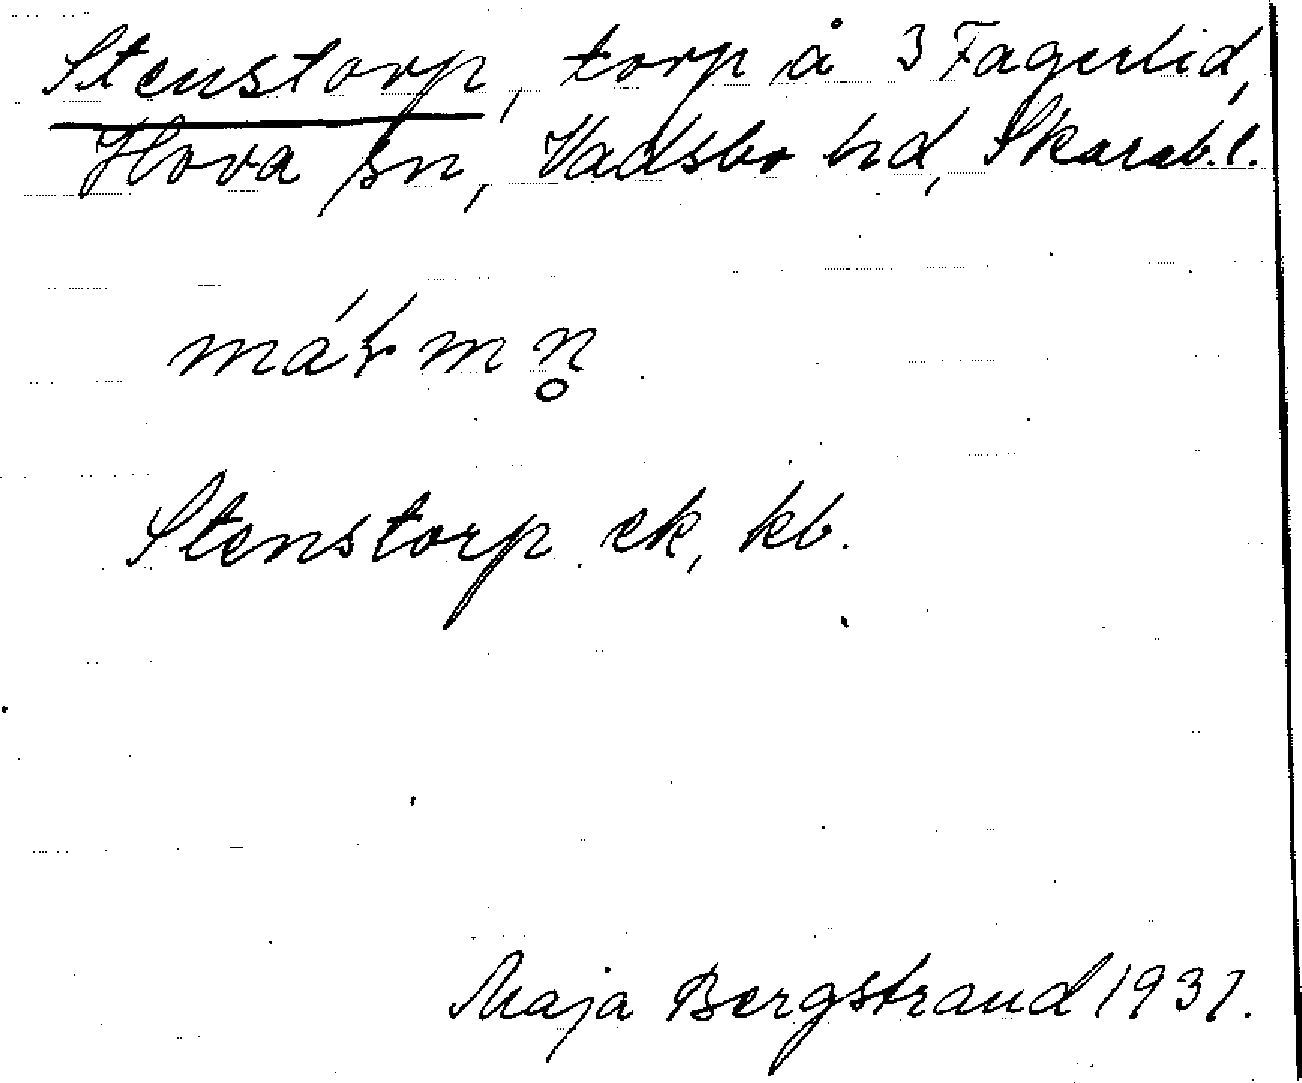 Stenstorp, torp å 3 Fagerlid,
Hova sn, Vadsbo hd, Skarab.l.
Stenstorp ek, kb.
Maja Bergstrand 1937.